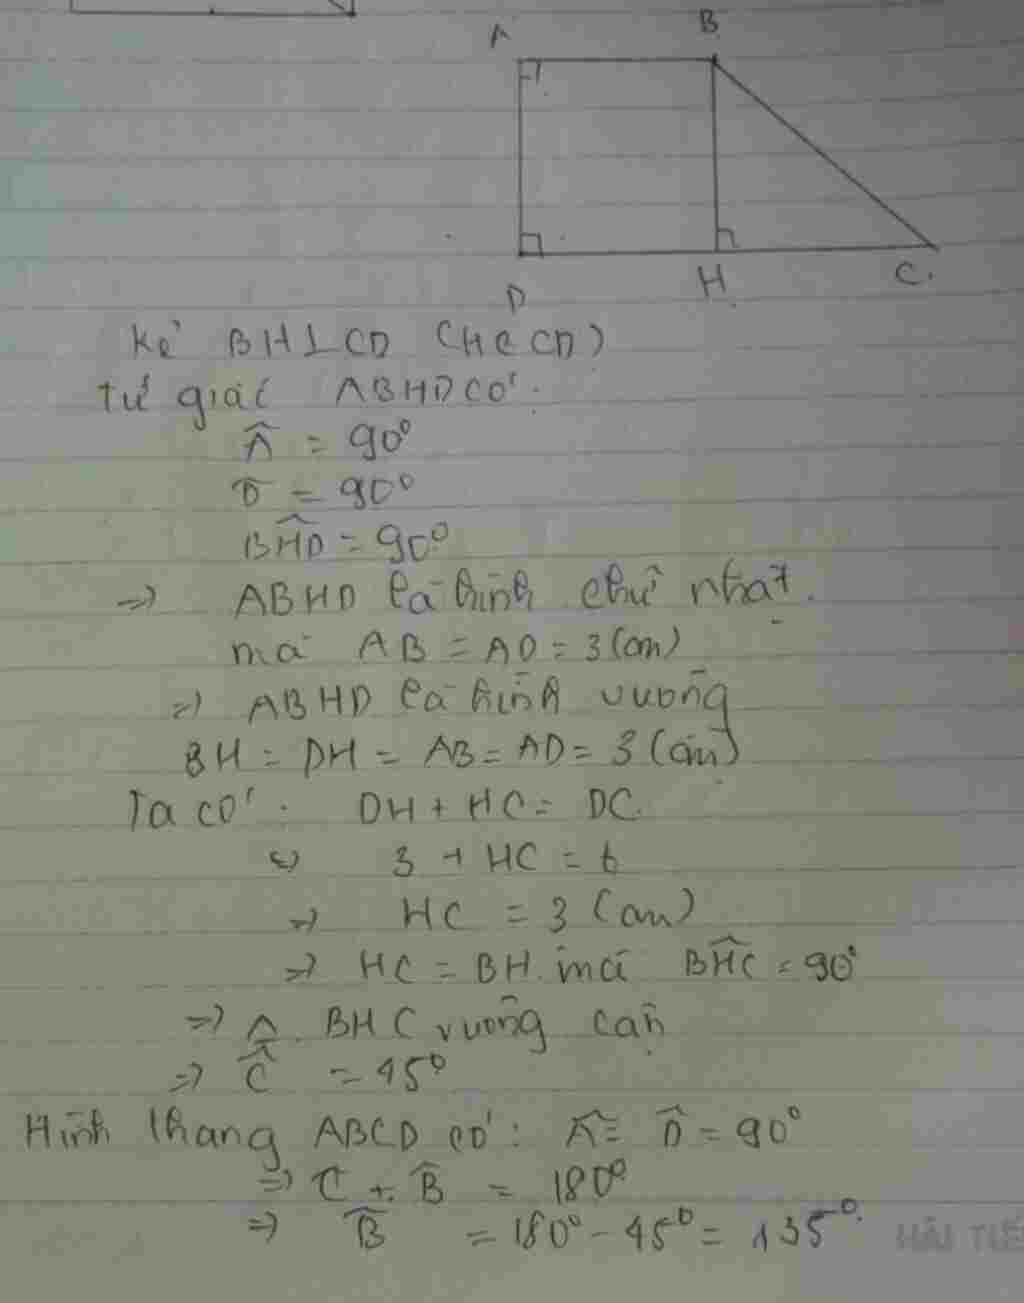 A B
D H C.
Kẻ BH⊥CD (H∈CD)
Tứ giác ABHD có:
Â = 90°
D̂ = 90°
BĤD = 90°
=> ABHD là hình chữ nhật.
mà AB = AD = 3 (cm)
=> ABHD là hình vuông
BH = DH = AB = AD = 3 (cm)
Ta có: DH + HC = DC.
<=> 3 + HC = 6
=> HC = 3 (cm)
=> HC = BH mà BĤC = 90°
=> Δ BHC vuông cân
=> Ĉ = 45°
Hình thang ABCD có: Â = D̂ = 90°
=> Ĉ + B̂ = 180°
=> B̂ = 180° - 45° = 135°.
HẢI TIẾ